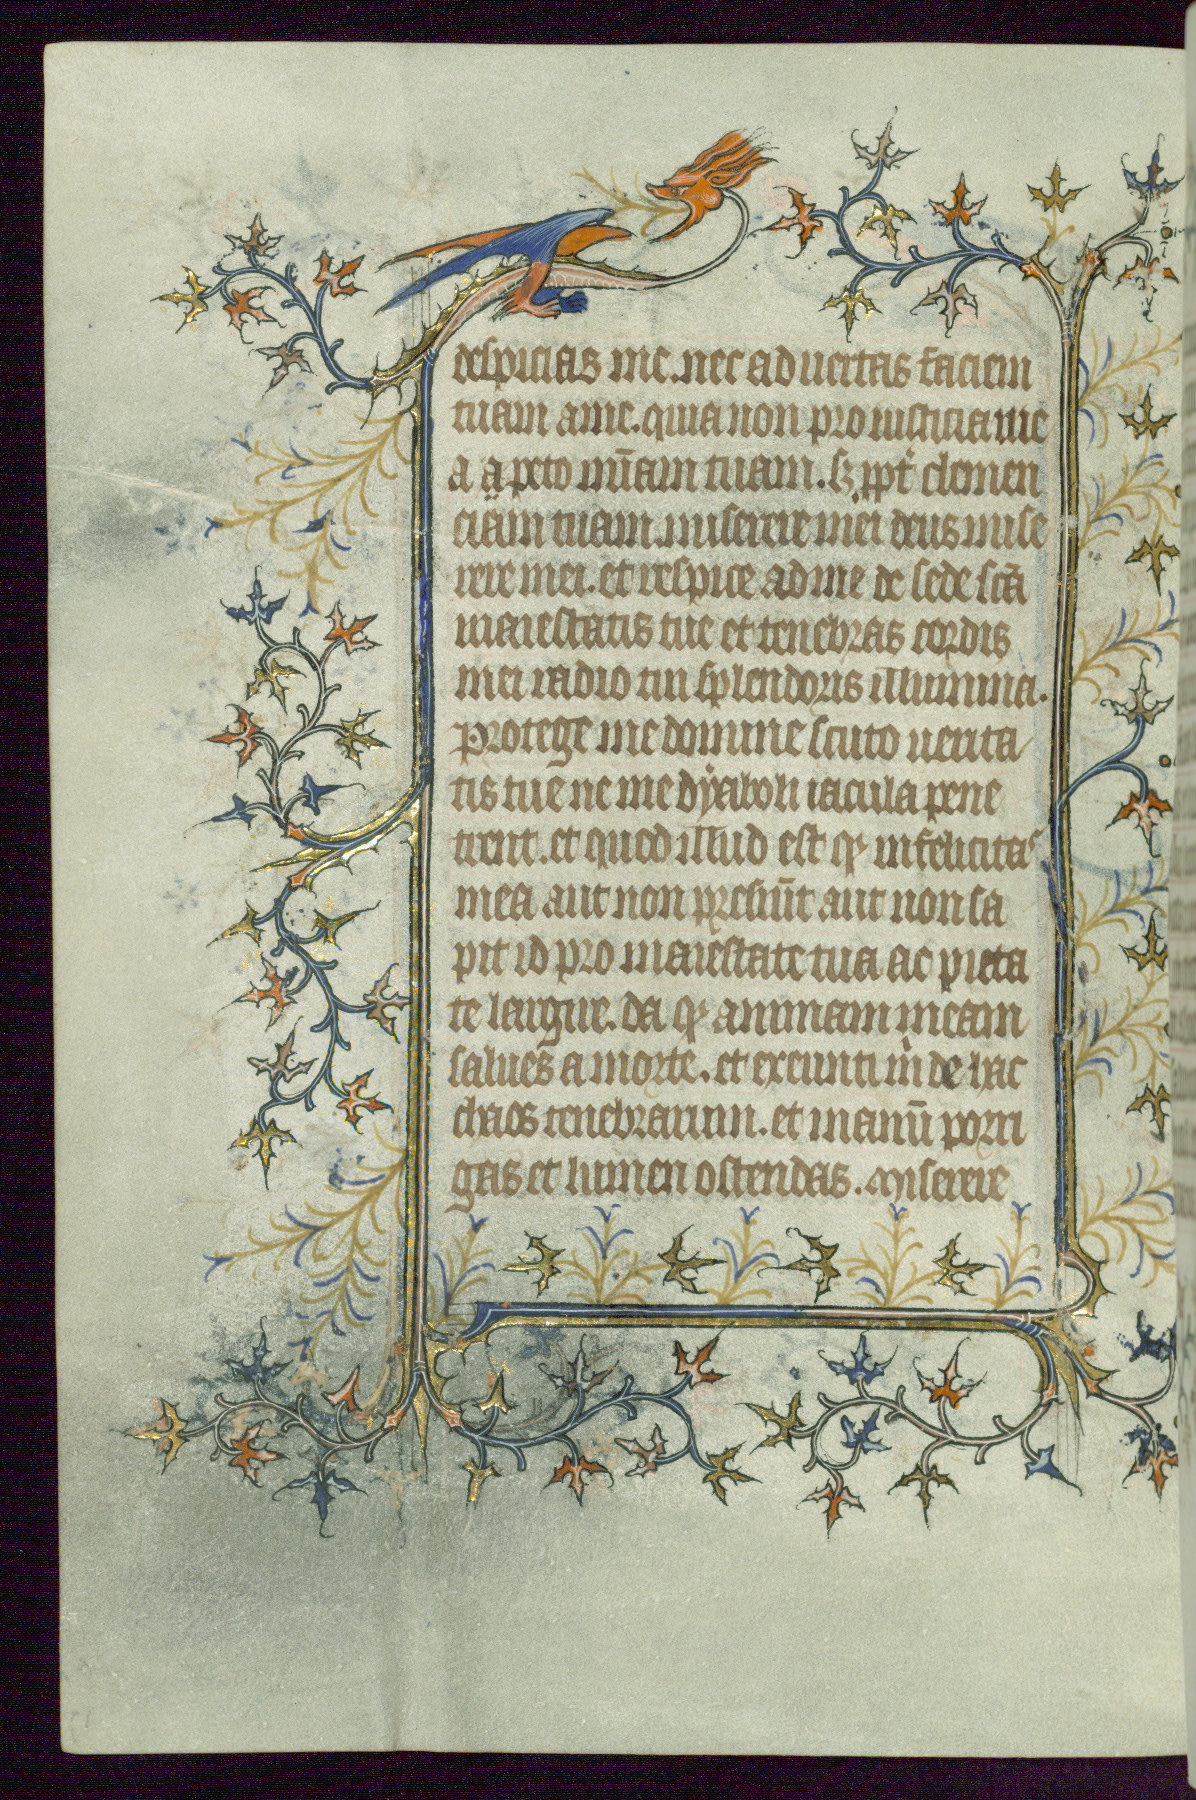 despicias me. nec aduertas faciem
tuam a me. quia non pro iusticia me
a a peto mīam tuam. sȝ ꝓpt̄ clemen
ciam tuam. miserere mei deus mise
rere mei. et respice ad me de sede sc̄a
maiestatis tue et tenebras cordis
mei radio tui splendoris illumina.
protege me domine scuto uerita
tis tue ne me dyaboli iacula pene
trent. et quod illud est ꝙ infelicitas
mea aut non presūt aut non sa
pit id pro maiestate tua ac pieta
te largire. da ꝙ animam meam
salues a morte. et exeunti m̄ de hac
chaos tenebrarum. et manū porri
gas et lumen ostendas. Miserere